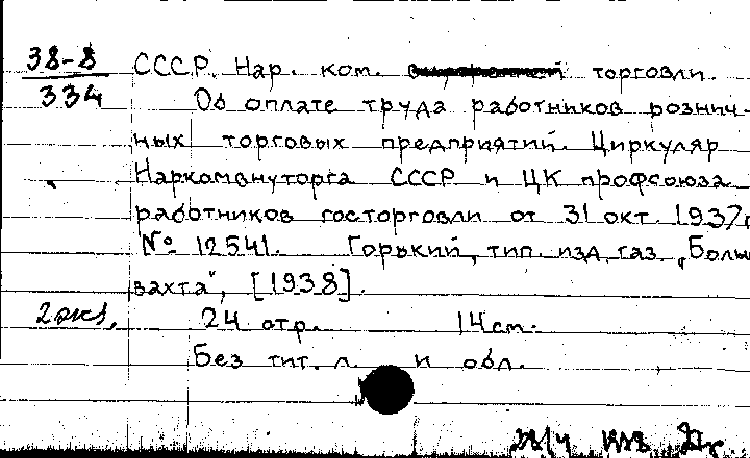 38-8
334
СССР. Нар. ком. торговли.
Об оплате труда работников рознич-
ных торговых предприятий. Циркуляр
Наркомвнуторга СССР и ЦК профсоюза
работников госторговли от 31 окт. 1937г.
№ 12541. Горький, тип. изд. газ. „Больш.
вахта", [1938].
2 экз.
24 стр. 14 см.
Без тит. л. и обл.
28/4 1938